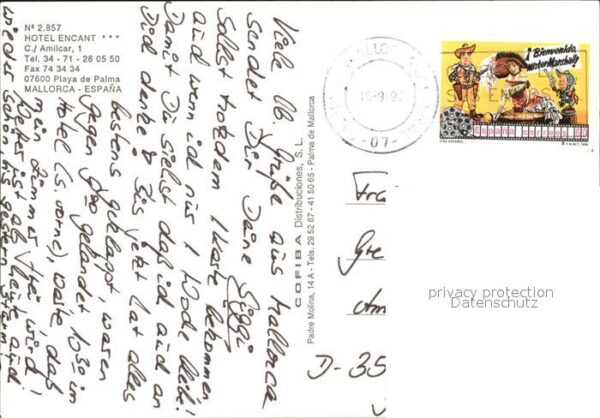 Nº 2.857
HOTEL ENCANT ***
C./ Amilcar, 1
Tel. 34 - 71 - 26 05 50
Fax 74 34 34
07600 Playa de Palma
MALLORCA - ESPAÑA
Viele lb. Grüße aus Mallorca
sendet Dir Deine Sigi
Sollst trotzdem 1 Karte bekommen
auch wenn ich nur 1 Woche bleib!
Damit Du siehst daß ich auch an
Dich denke! Bis jetzt hat alles
bestens geklappt, waren
gegen gelandet 10.30 im
Hotel (s. vorne), warte daß
mein Zimmer frei wird!
Wetter ist ab heute auch
wieder schön bis gestern Sturm!
COFIBA Distribuciones, S. L.
Padre Molina, 14 A - Tels. 29 52 87 - 41 50 65 - Palma de Mallorca
¡Bienvenido,
Mister Marshall!
España correos
CINE ESPAÑOL
-07-
Fra
Gre
Am
D-35
privacy protection
Datenschutz